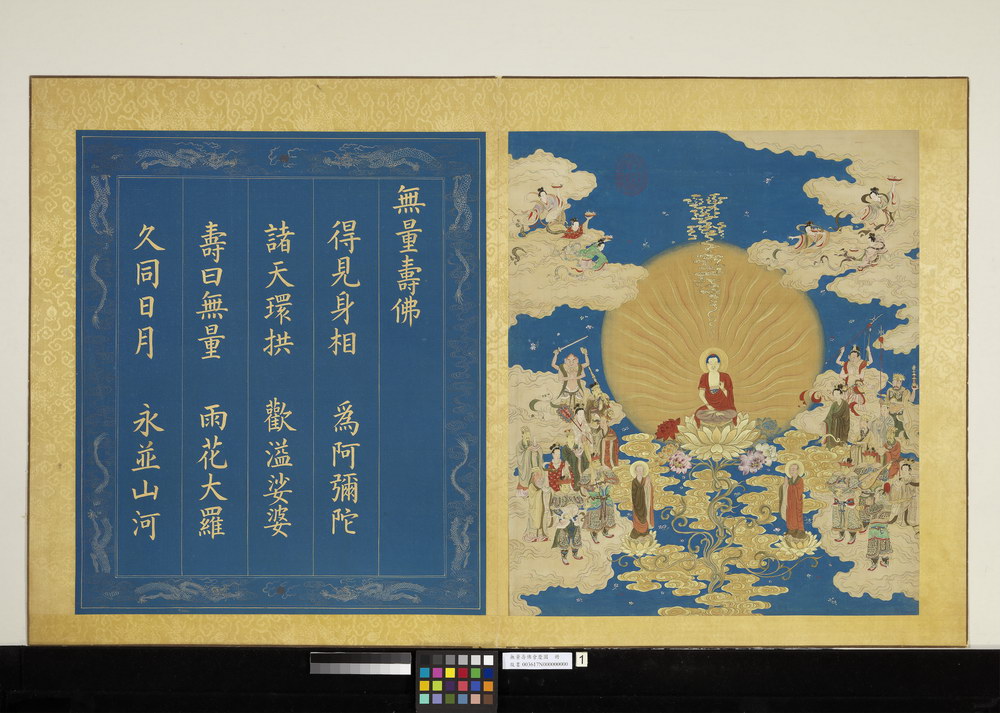 無量壽佛
得見身相 爲阿彌陀
諸天環拱 歡溢娑婆
壽曰無量 雨花大羅
久同日月 永並山河
1